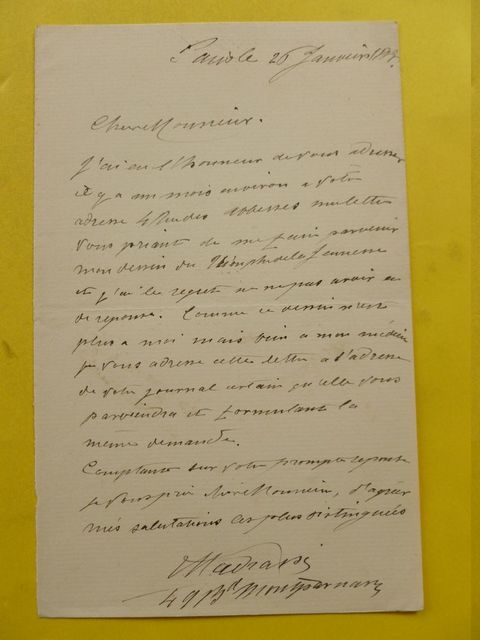 Paris le 26 Janvier
Cher Monsieur.
J'ai eu l'honneur de vous adresser
il y a un mois environ a votre
adresse 4 Rue des Abbesses une lettre
vous priant de me faire parvenir
mon dessin du Triomphe de la Jeunesse
et j'ai le regret de ne pas avoir eu
de reponse. Comme ce dessin n'est
plus a moi mais bien a mon médecin
je vous adresse cette lettre a l'adresse
de votre journal certain qu'elle vous
parviendra et formulant la
même demande.
Comptant sur votre prompte reponse
je vous prie cher Monsieur, d'agréer
mes salutations les plus distinguées
Madrassi
49 Bd Montparnasse